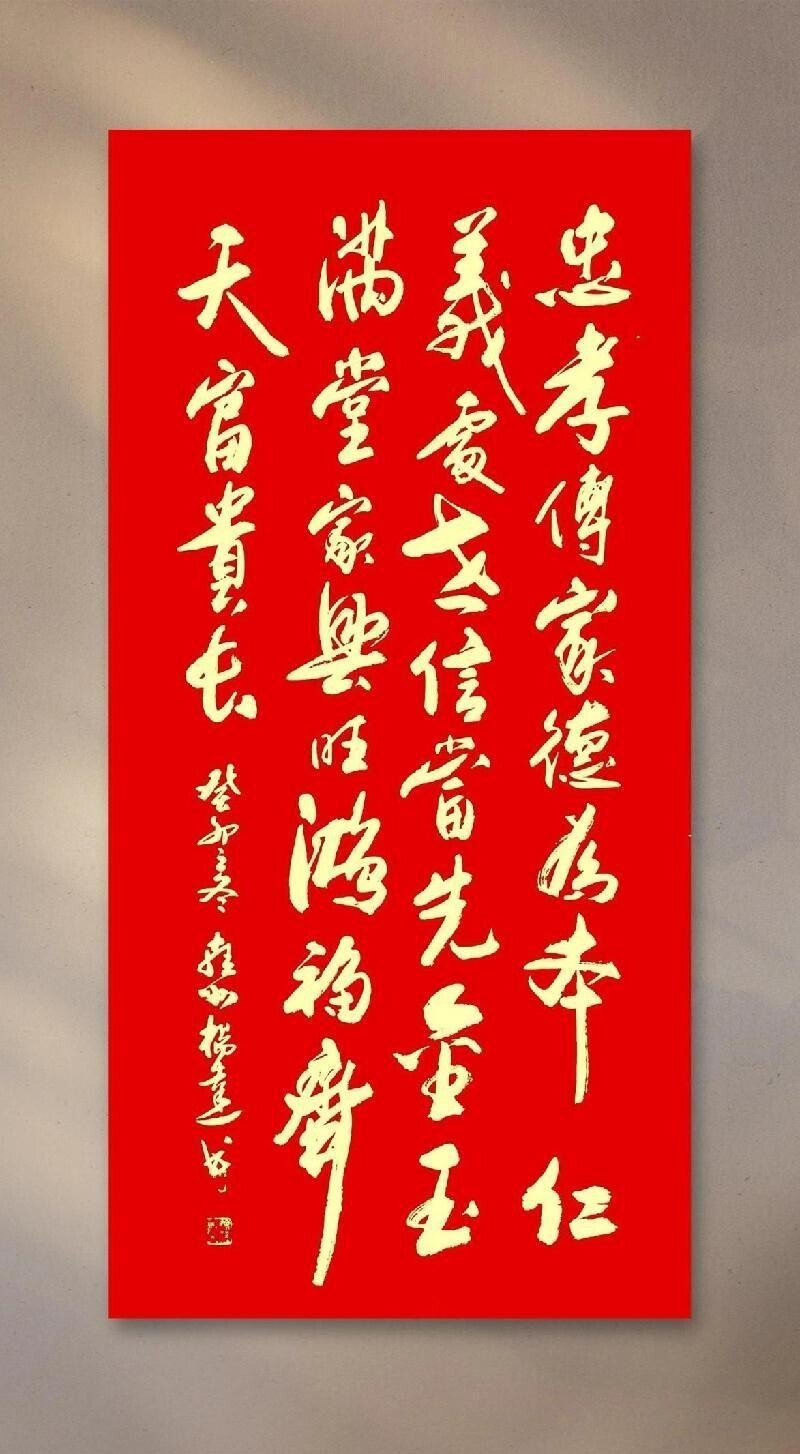 忠孝傳家德為本仁
義處世信當先金玉
滿堂家興旺鴻福齊
天富貴長
癸卯之冬 山楊達书